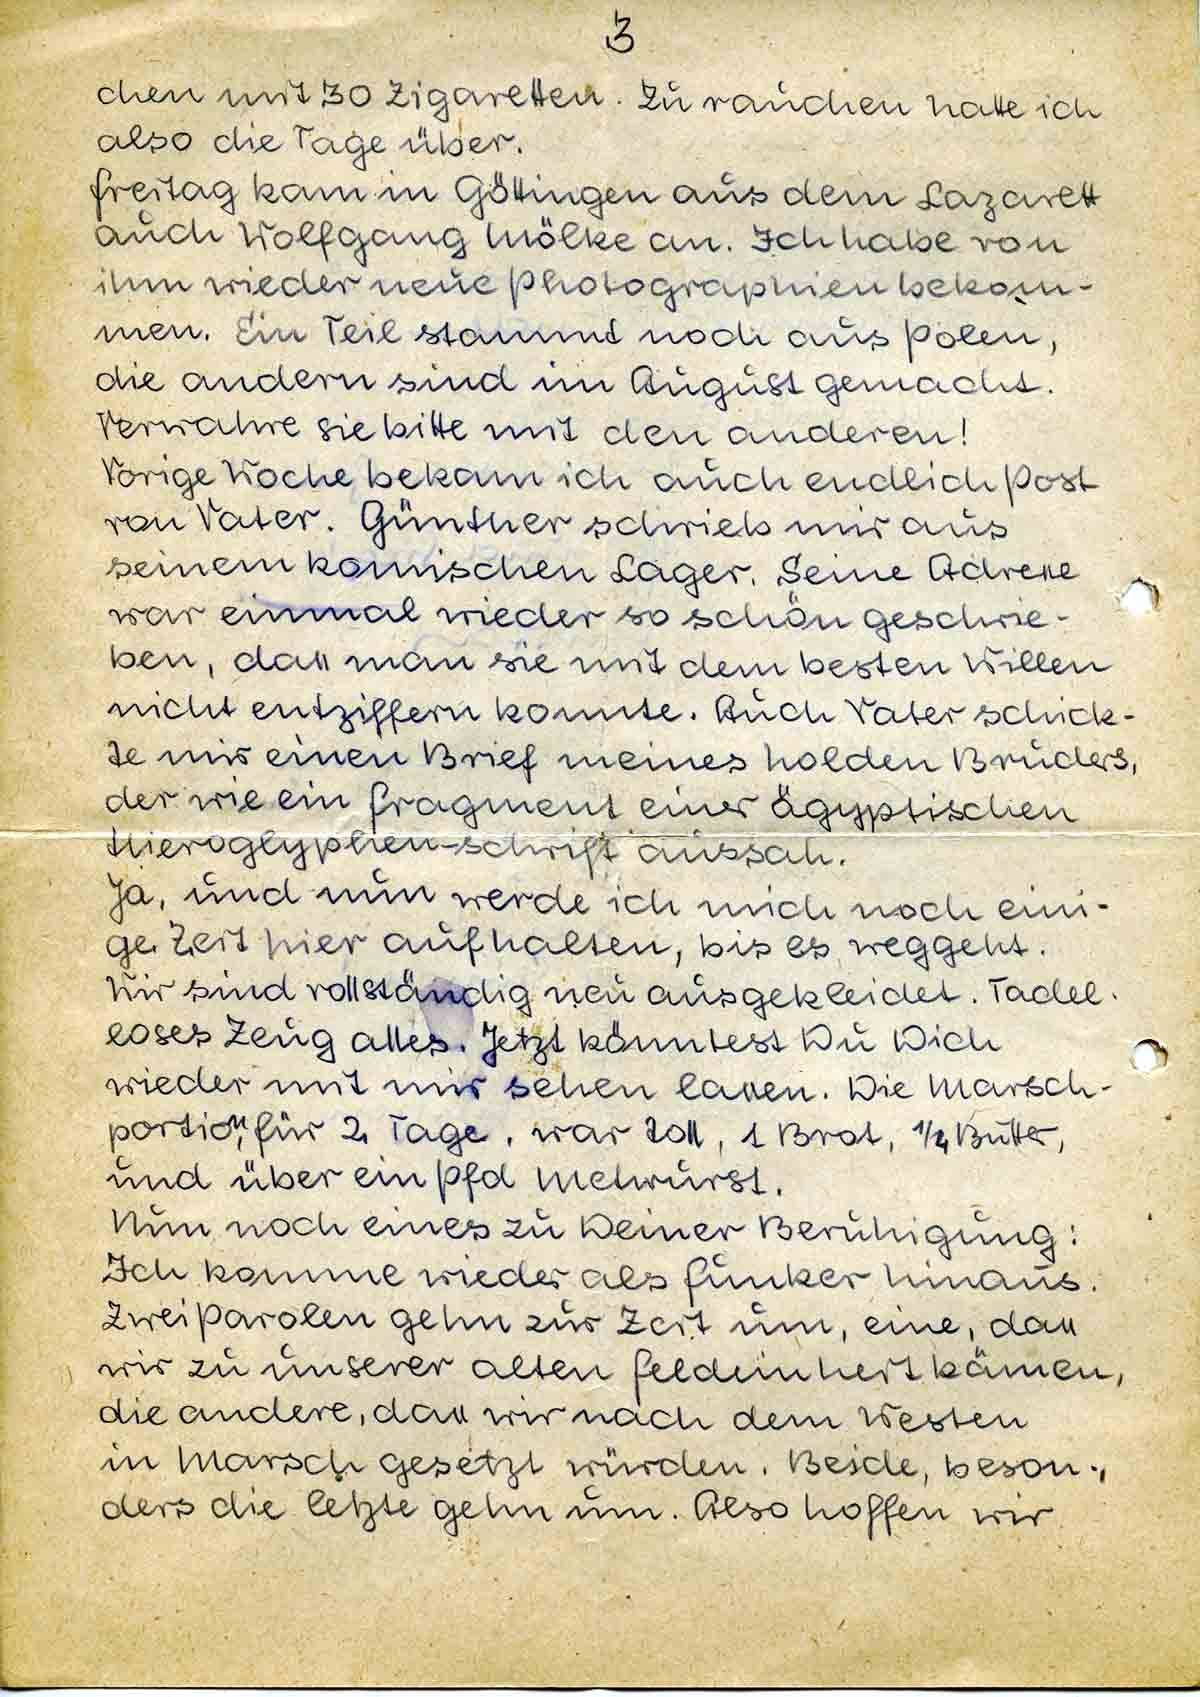 3
chen mit 30 Zigaretten. Zu rauchen hatte ich
also die Tage über.
Freitag kam in Göttingen aus dem Lazarett
auch Wolfgang Mölke an. Ich habe von
ihm wieder neue Photographien bekom-
men. Ein Teil stammt noch aus Polen,
die andern sind im August gemacht.
Verwahre sie bitte mit den anderen!
Vorige Woche bekam ich auch endlich Post
von Vater. Günther schrieb mir aus
seinem komischen Lager. Seine Adresse
war einmal wieder so schön geschrie-
ben, dass man sie mit dem besten Willen
nicht entziffern konnte. Auch Vater schick-
te mir einen Brief meines holden Bruders,
der wie ein Fragment einer ägyptischen
Hieroglyphen-schrift aussah.
Ja, und nun werde ich mich noch eini-
ge Zeit hier aufhalten, bis es weggeht.
Wir sind vollständig neu ausgekleidet. Tadel-
loses Zeug alles. Jetzt könntest Du Dich
wieder mit mir sehen lassen. Die Marsch-
portion, für 2 Tage, war toll, 1 Brot, 1/4 Butter,
und über ein Pfd Metwurst.
Nun noch eines zu Deiner Beruhigung:
Ich komme wieder als Funker hinaus.
Zwei Parolen gehn zur Zeit um, eine, dass
wir zu unserer alten Feldeinheit kämen,
die andere, dass wir nach dem Westen
in Marsch gesetzt würden. Beide, beson-
ders die letzte gehn um. Also hoffen wir